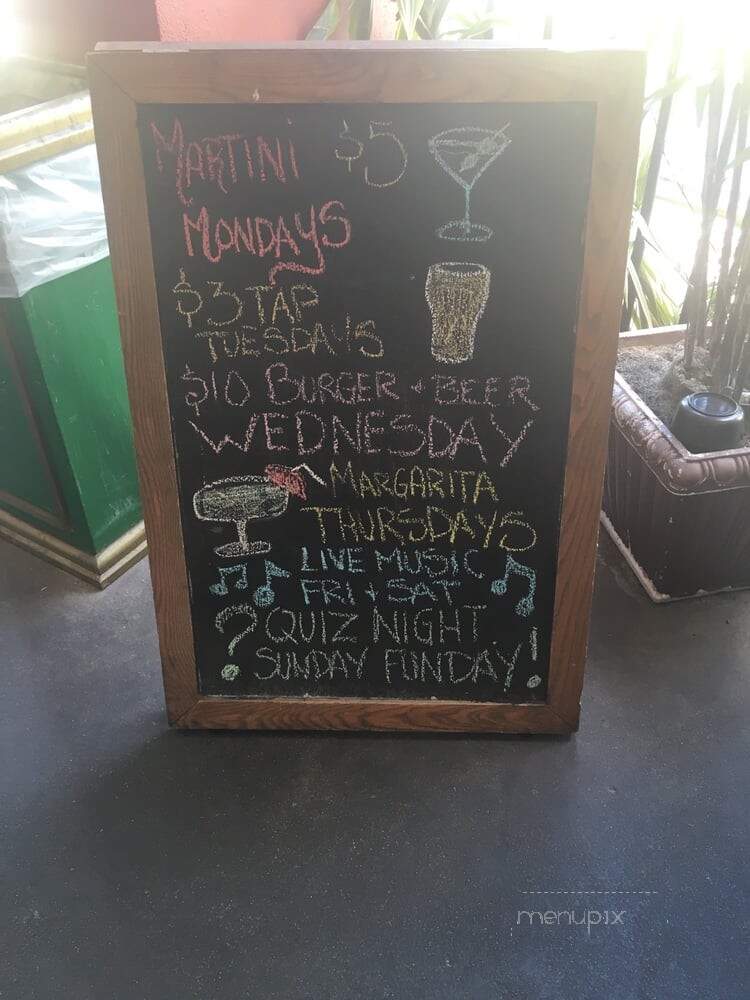 MARTINI $5
MONDAYS
$3 TAP
TUESDAYS
$10 BURGER + BEER
WEDNESDAY
MARGARITA
THURSDAYS
LIVE MUSIC
FRI + SAT
? QUIZ NIGHT
SUNDAY FUNDAY!
menupix